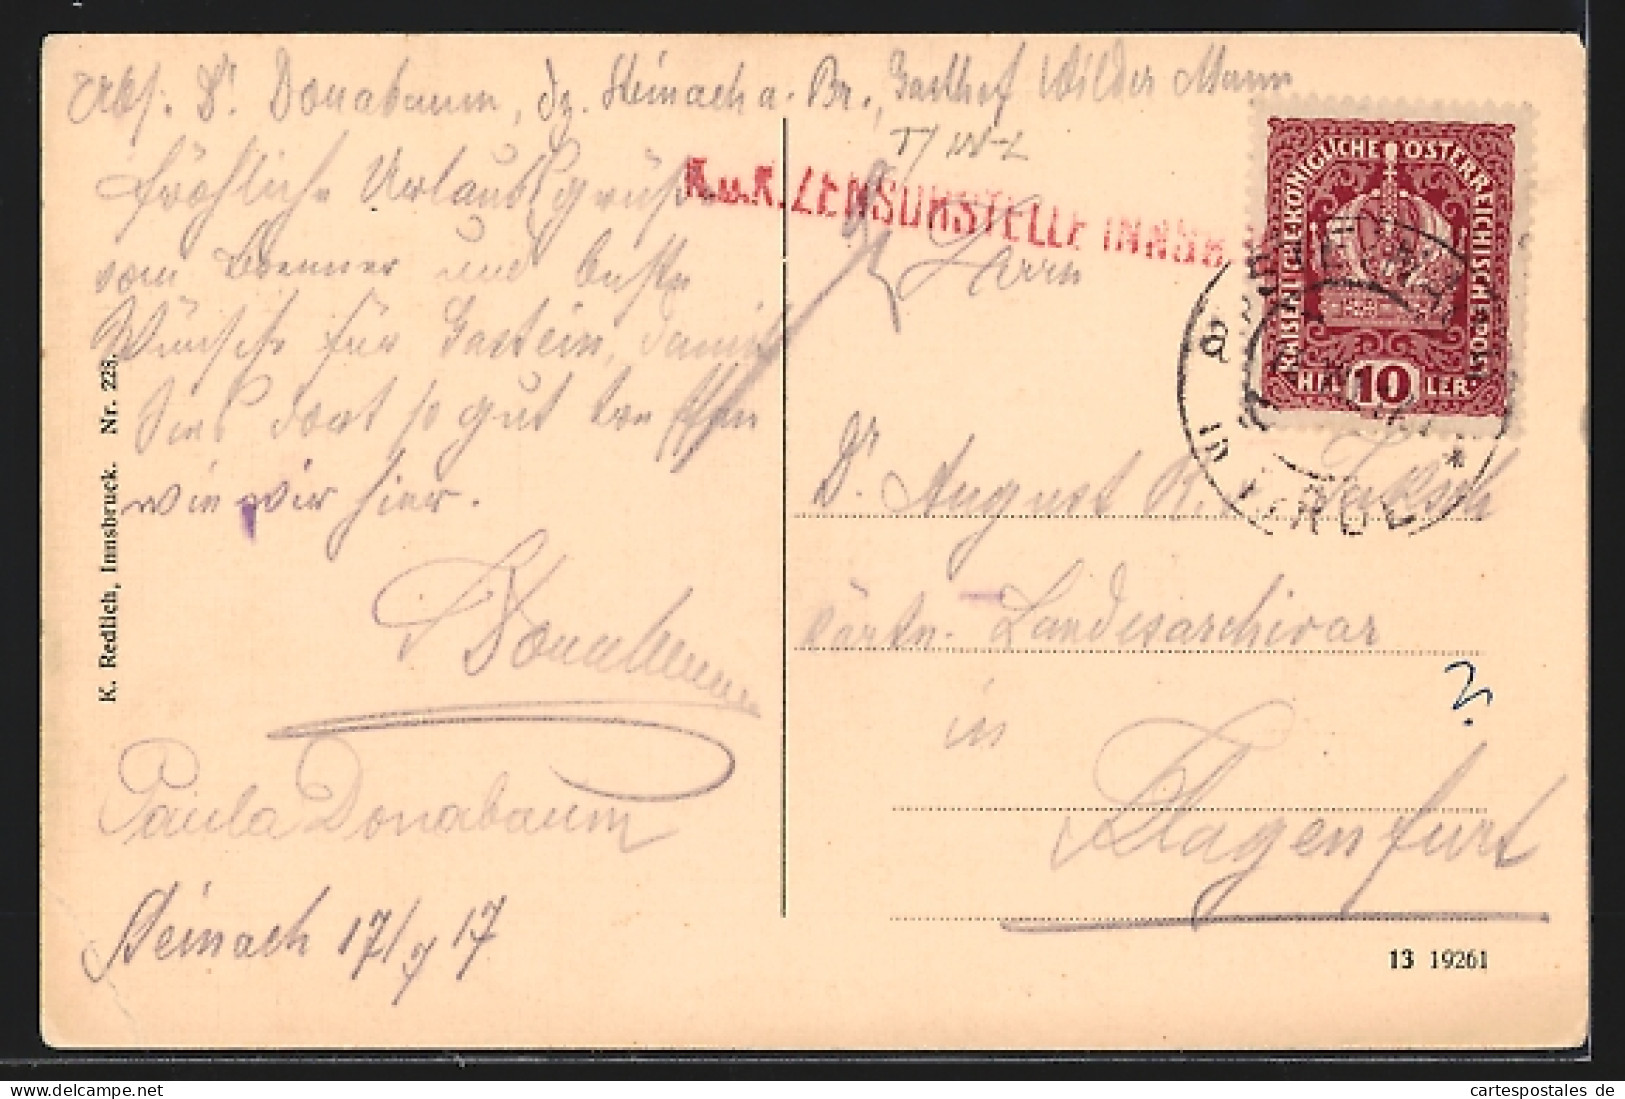 Abs. Dr. Donabaum, dz. Steinach a. Br., Gasthof Wilder Mann
Fröhliche Urlaubsgrüße
vom Brenner und beste
Wünsche für Gastein, damit
Sie's dort so gut treffen
wie wir hier.
Donabaum
Paula Donabaum
Steinach 17/ 17
K. Redlich, Innsbruck. Nr. 228.
K.u.K. ZENSURSTELLE INNSB
KAISERLICHE KÖNIGLICHE ÖSTERREICHISCHE POST
10
HELLER
TIROL *
Herrn
Dr. August R. Jaksch
kärtn. Landesarchivar
in
Klagenfurt
?
13 19261
cartespostales de